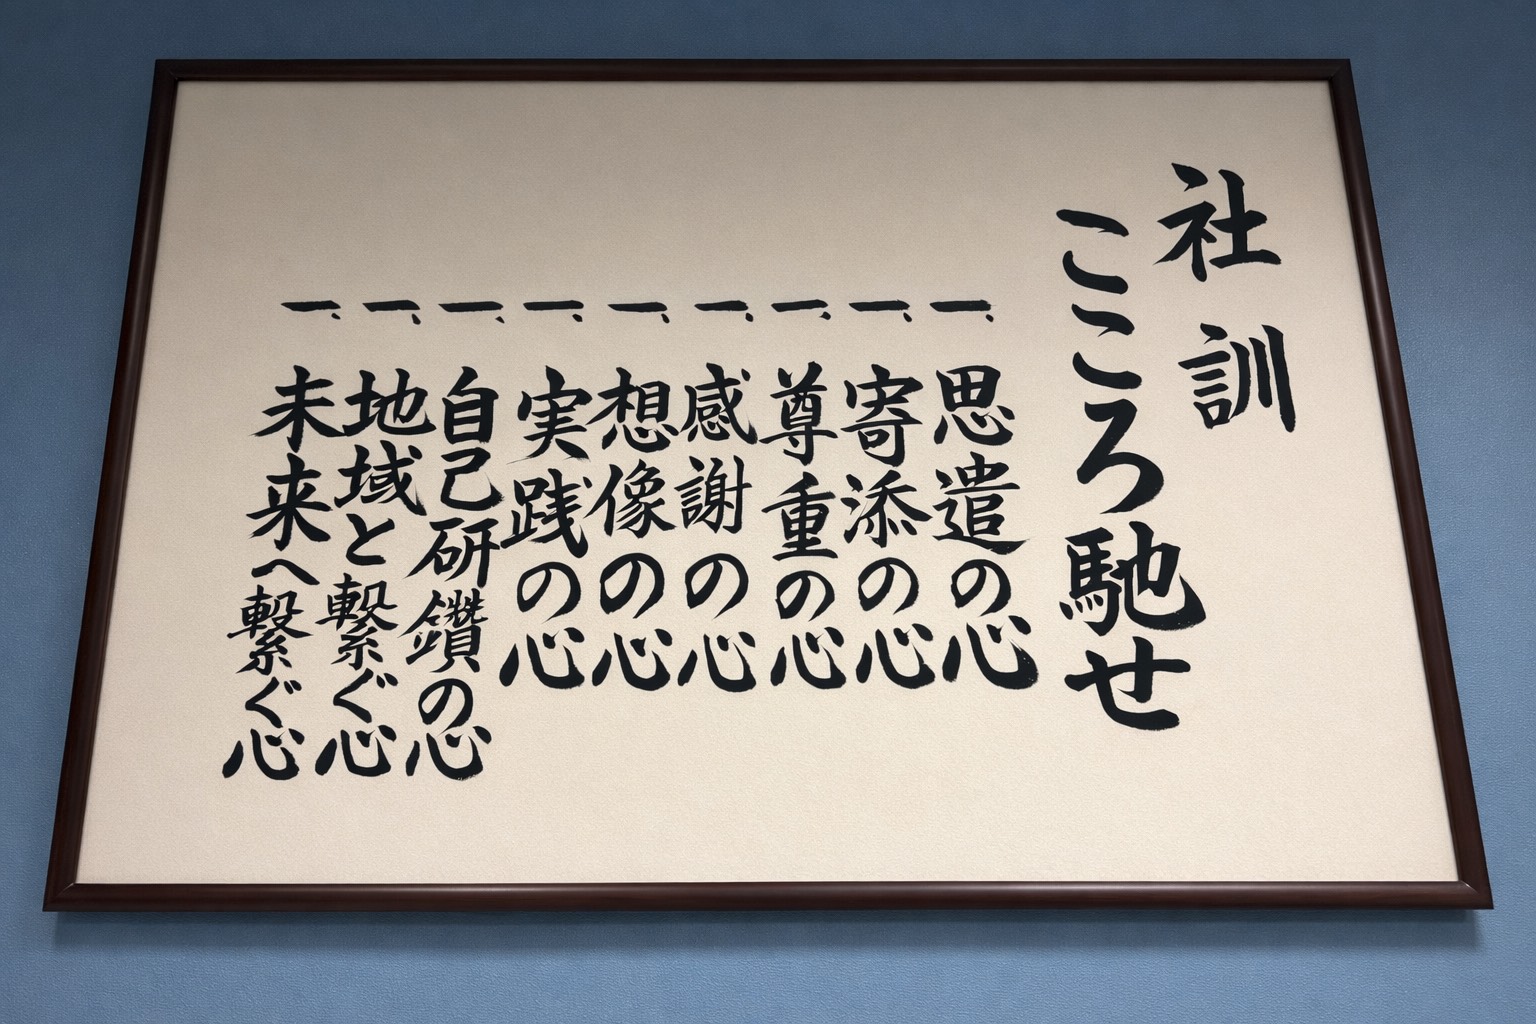 社訓
こころ馳せ
一、思遣の心
一、寄添の心
一、尊重の心
一、感謝の心
一、想像の心
一、実践の心
一、自己研鑽の心
一、地域と繋ぐ心
一、未来へ繋ぐ心